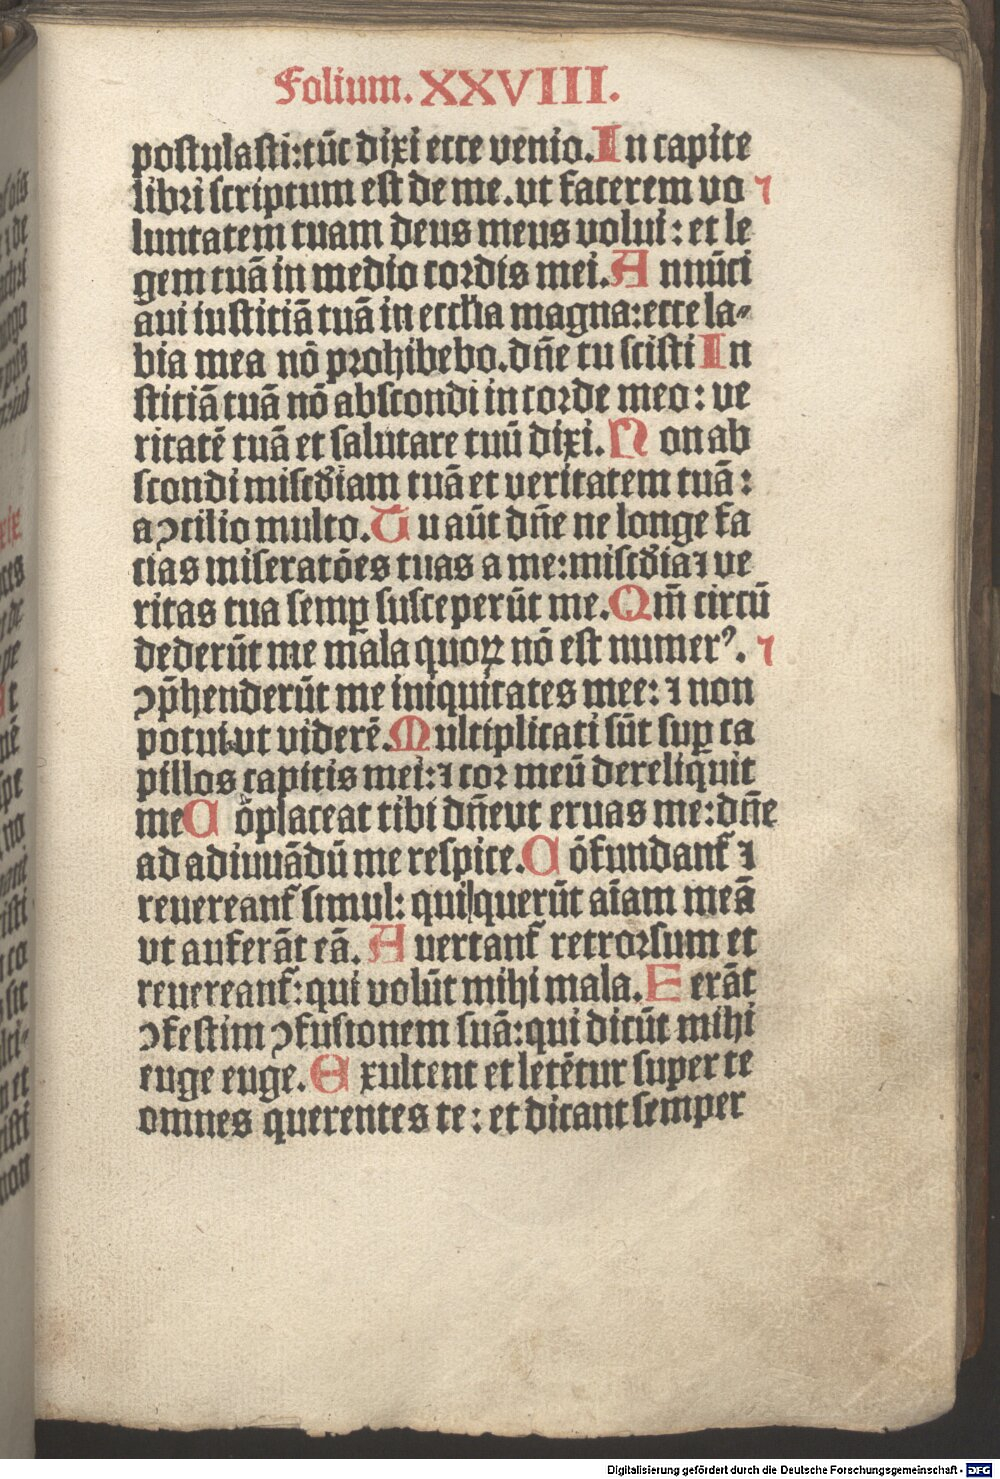 Folium. XXVIII.
postulasti: tūc dixi ecce venio. In capite
libri scriptum est de me. ut facerem vo ⁊
luntatem tuam deus meus volui: et le
gem tuā in medio cordis mei. Annūci
avi iustitiā tuā in eccl̄ia magna: ecce la-
bia mea nō prohibebo. dn̄e tu scisti In
stitiā tuā nō abscondi in corde meo: ve
ritatē tuā et salutare tuū dixi. Non ab
scondi mis̄cdiam tuā et veritatem tuā:
a ꝯcilio multo. Tu aūt dn̄e ne longe fa
cias miseratōes tuas a me: mis̄cdia ⁊ ve
ritas tua semꝑ susceperūt me. Qm̄ circū
dederūt me mala quoꝝ nō est numerꝰ. ⁊
ꝯp̄henderūt me iniquitates mee: ⁊ non
potui. ut viderē. Multiplicati sūt suꝑ ca
pillos capitis mei: ⁊ cor meū dereliq̄uit
me Cōplaceat tibi dn̄e ut eruas me: dn̄e
ad adiuuādū me respice. Cōfundant᷑ ⁊
reuereant᷑ simul: qui querūt aīam meā
vt auferāt eā. Auertant᷑ retrorsum et
reuereant᷑: qui volūt mihi mala. Ferāt
ꝯfestim ꝯfusionem suā: qui dicūt mihi
euge euge. Exultent et letētur super te
omnes querentes te: et dicant semper
Digitalisierung gefördert durch die Deutsche Forschungsgemeinschaft - DFG